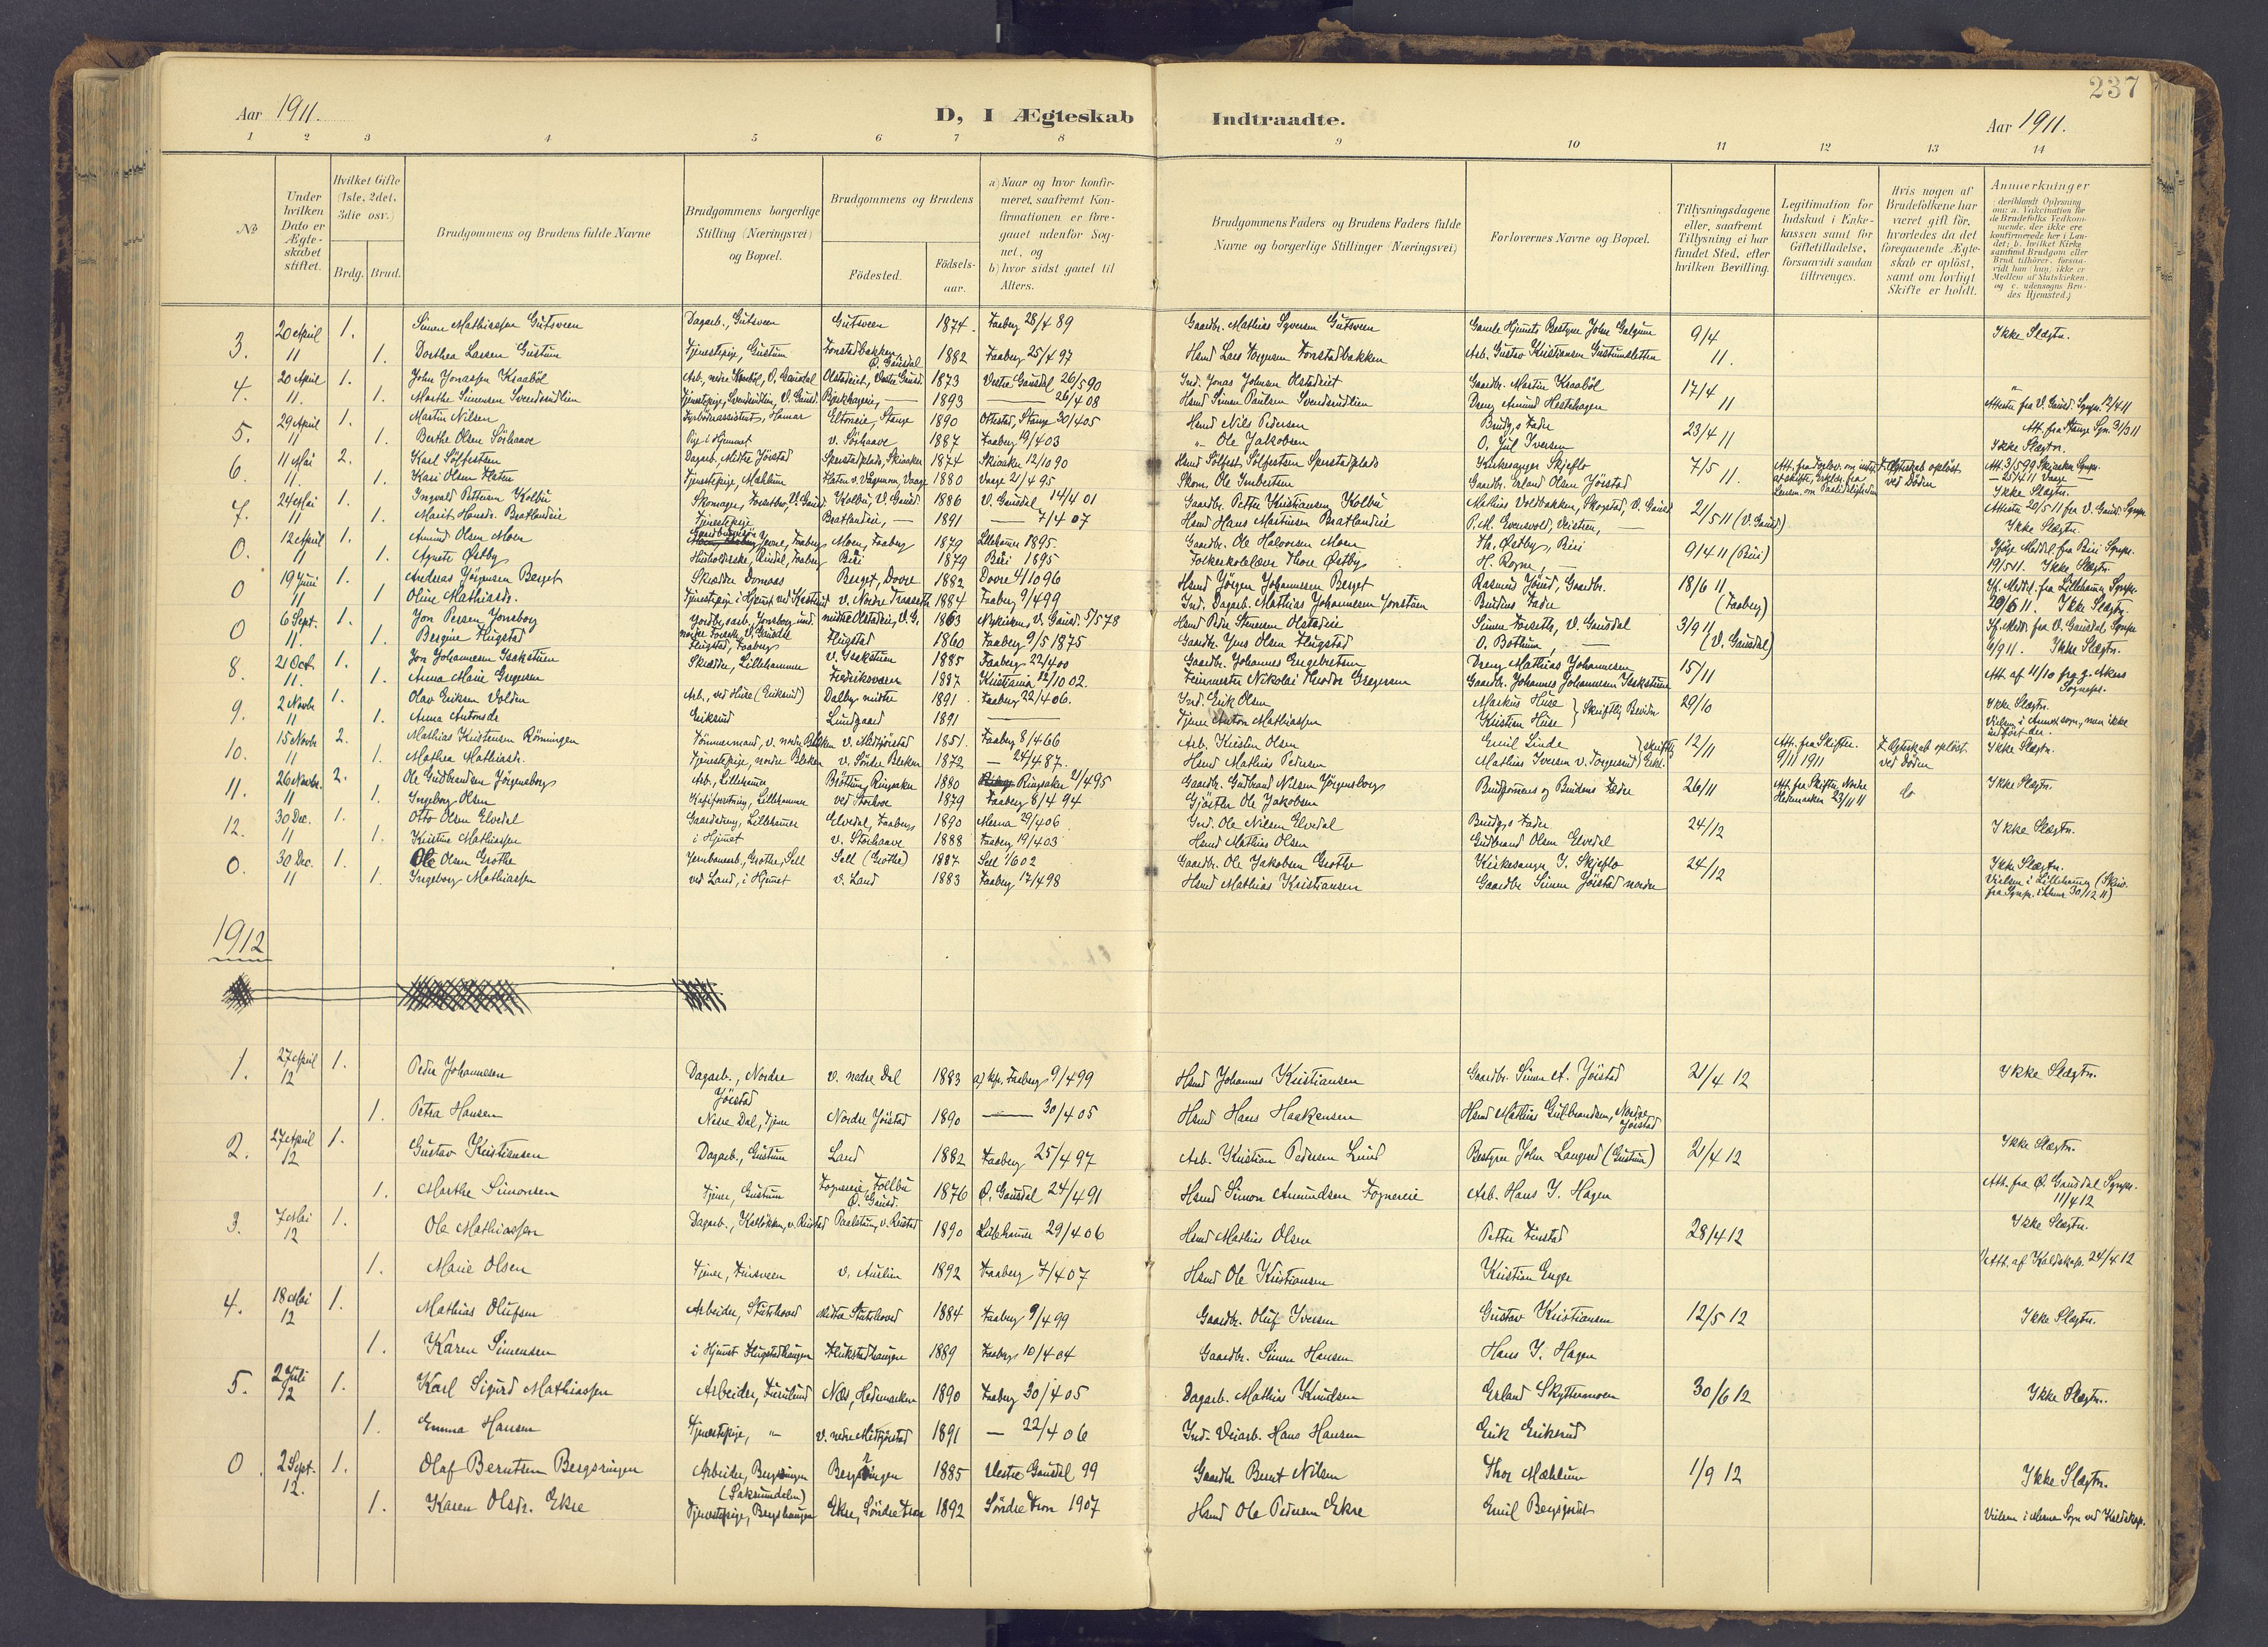 237
Aar 1911.
D, I Ægteskab
Indtraadte.
Aar 1911.
1 2 3 4 5 6 7 8 9 10 11 12 13 14
No
Under hvilken Dato er Ægteskabet stiftet.
Hvilket Gifte (1ste, 2det, 3die osv.)
Brdg. Brud.
Brudgommens og Brudens fulde Navne
Brudgommens borgerlige Stilling (Næringsvei) og Bopæl.
Brudgommens og Brudens
Födested.
Födselsaar.
a) Naar og hvor konfirmeret, saafremt Konfirmationen er foregaaet udenfor Sognet, og
b) hvor sidst gaaet til Alters.
Brudgommens Faders og Brudens Faders fulde Navne og borgerlige Stillinger (Næringsvei)
Forlovernes Navne og Bopæl.
Tillysningsdagene eller, saafremt Tillysning ei har fundet Sted, efter hvilken Bevilling.
Legitimation for Indskud i Enkekassen samt for Giftetilladelse, forsaavidt saadan tiltrænges.
Hvis nogen af Brudefolkene har været gift för, hvorledes da det foregaaende Ægteskab er oplöst, samt om lovligt Skifte er holdt.
Anmerkninger (deriblandt Oplysning om: a. Vakcination for de Brudefolks Vedkommende, der ikke ere konfirmerede her i Landet; b. hvilket Kirkesamfund Brudgom eller Brud tilhörer, forsaavidt han (hun) ikke er Medlem af Statskirken. og c. udensogns Brudes Hjemsted.)
3. 20 April 11 1. Simen Mathiassen Gutsveen Dagarb., Gutsveen Gutsveen 1874. Faaberg 28/4 89 Gaardbr. Mathias Syversen Gutsveen Gamle Hjemets Bestyrer John Galgum 9/4 11. Ikke Slægtn.
1. Dorthea Larsen Gustum Tjenestepige, Gustum Fonstadbakken, Ø. Gausdal 1882 Faaberg 25/4 97 Hsmd Lars Torgersen Fonstadbakken Arb. Gustav Kristiansen Gustumsletten
4. 20 April 11. 1. John Jonassen Kraaböl Arb., nedre Kraaböl, V. Gausdal Olstadeiet, Vestre Gausd. 1873 Vestre Gausdal 26/5 90 Ind. Jonas Johnsen Olstadeiet Gaardbr. Martin Kraaböl 17/4 11 "
1. Marthe Simensen Svendsrudlien Tjenestepige, Svendsrudlien, V. Gausd. 1893 26/4 08 Hsmd Simen Paulsen Svendsrudlien Dreng Amund Hestehagen Attester fra V. Gausd. Sognepr. 12/4 11
5. 29 April 11 1. Martin Nilsen Fyrböderassistent, Hamar Eltoneie, Stange 1890 Ottestad, Stange 30/4 05 Hsmd Nils Pedersen Brudg.s Fader 23/4 11 Att. fra Stange Spr. 31/3 11
1. Berthe Olsen Sörhaave Pige i Hjemmet v. Sörhaave 1887 Faaberg 19/4 03 " Ole Jakobsen O. Jul Iversen Ikke Slægtn.
6. 11 Mai 11. 2. Karl Sölfestsen Dagarb. Midtre Jöistad Sperstadplads, Skiaaker 1874 Skiaaker 12/10 90 Hsmd Sölfest Sölfestsen Sperstadplads Kirkesanger Skjeflo 7/5 11. Ægteskab oplöst ved Döden Att. 3/5 99 Skjaaker Sognepr.
1. Kari Olsen Flaten Tjenestepige, Mæhlum Flaten v. Vaagemoen, Vaage 1880 Vaage 21/4 95 Skom. Ole Embretsen Gaardbr. Erland Olsen Jöistad 25/4 11 Vaage
7. 24 Mai 11 1. Ingvald Pettersen Kolbu Skomager, Forsetbro, V. Gausd. Kolbu, V. Gausd. 1886 V. Gausdal 14/4 01 Gaardbr. Petter Kristiansen Kolbu Mathias Voldbakken, Skogstad, V. Gausd. 21/5 11 (V. Gausd.) Ikke Slægtn. Attester 20/5 11 fra V. Gausd. Sognepr.
1. Marit Hansdr. Bratlandeie Tjenestepige Bratlandeie, 1891 7/4 07 Hsmd Hans Martinsen Bratlandeie P. M. Evensvold, Veisten, Ikke Slægtn.
0. 12 April 11 1. Amund Olsen Moen Gaardbruger Jevne, Faaberg Moen, Faaberg 1879 Lillehammer 1895. Gaardbr. Ole Halvorsen Moen Th. Østby, Biri 9/4 11 (Biri) Ifölge Meddel. fra Biri Sognepr.
1. Agnete Østby Husholderske, Rindal, Faaberg Biri 1879 Biri 1895 Folkeskolelærer Thore Østby H. Rogne, 19/5 11. Ikke Slægtn.
0 19 Juni 11 1. Andreas Jörgensen Berget Skrædder Domaas Berget, Dovre 1882 Dovre 4/10 96 Hsmd Jörgen Johannessen Berget Rasmus Jörud, Gaardbr. 18/6 11 (Faaberg) If. Meddel. fra Lillehammer Sognepr.
1 Oline Mathiasdr. v. Nordre Traaseth 1884 Faaberg 9/4 99 Ind. Dagarb. Mathias Johannesen Jonstuen Brudens Fader 20/6 11. Ikke Slægtn.
0 6 Sept. 11. 1. Jon Persen Jonsborg midtre Olstadeie, V. G. 1863 Nykirken V. Gausd. 5/5 78 Hsmd Peder Stenersen Olstadeie Simen Forseth, V. Gausdal 3/9 11 (V. Gausdal) If. Medd. fra V. Gausdal Sognepr.
1. Bergine Flugstad Flugstad, Faaberg Flugstad 1860 Faaberg 9/5 1875 Gaardbr. Jens Olsen Flugstad O. Bothum, 6/9 11. Ikke Slægtn.
8. 21 Oct. 11. 1. Jon Johannesen Isakstuen Skrædder, Lillehammer v. Isakstuen 1885 Faaberg 22/4 00 Gaardbr. Johannes Engebretsen Dreng Mathias Johannesen 15/11 Att. af 11/10 fra g. Akers Sognepr.
1. Anna Marie Gregersen Fredriksværn 1887 Kristiania 12/10 02. Feiermester Nikolai Theodor Gregersen Gaardbr. Johannes Johannesen Isakstuen
9. 2 Novbr 11 1. Olav Eriksen Volden Arb., ved Huse (Eriksrud) Dalby midtre 1891 Faaberg 22/4 06. Ind. Erik Olsen Markus Huse 29/10 Ikke Slægtn.
1. Anna Antonsdr. Eriksrud Lundgaard 1891 Tjener Anton Mathiassen Kristian Huse } Skriftlig Bevidn. Vielsen i Annex sogn, men ikke indfört der.
10. 15 Novbr 11 2. Mathias Kristensen Rönningen Tömmermand, v. nedre Bleken v. Midtjörstad 1851. Faaberg 8/4 66 Arb. Kristen Olsen Emil Linde 12/11 Att. fra Skifter. 9/11 1911 F. Ægteskab oplöst. ved Döden Ikke Slægtn.
1. Mathea Mathiasdr. Tjenestepige, nordre Bleken v. Söndre Bleken 1872 24/4 87. Hsmd Mathias Pedersen Mathias Iversen v. Torgersrud } skriftlig Erkl.
11. 26 Novbr. 11 2. Ole Gudbrandsen Jörgensborg Arb., Lillehammer Bröttum, Ringsaker 1880 Ringsaker 21/4 95 Gaardbr. Gudbrand Nilsen Jörgensborg Brudgommens og Brudens Fædre 26/11 Att. fra Skifter. Nordre Hedemarken 23/11 11 do Ikke Slægtn.
1. Ingeborg Olsen Kaféforretning, Lillehammer ved Storhove 1879 Faaberg 8/4 94 Gjörtler Ole Jakobsen
12. 30 Dec. 11 1. Otto Olsen Elvedal Gaardsdreng, Lillehammer Elvedal, Faaberg 1890 Mesna 29/4 06 Ind. Ole Nilsen Elvedal Brudg.s Fader 24/12 Ikke Slægtn.
1. Kristine Mathiassen i Hjemmet v. Storhaave 1888 Faaberg 19/4 03 Hsmd Mathias Olsen Gudbrand Olsen Elvedal
0. 30 Dec. 11 1. Ole Olsen Grothe Jernbanearb., Grothe, Sell Sell (Grothe) 1887 Sell 1/6 02 Gaardbr. Ole Jakobsen Grothe Kirkesanger J. Skjeflo 24/12 Ikke Slægtn.
1. Ingeborg Mathiassen ved Land, i Hjemmet v. Land 1883 Faaberg 17/4 98 Hsmd Mathias Kristiansen Gaardbr Simen Jöistad nordre Vielsen i Lillehammer (Skriv. fra Sognepr. i Lhmr 30/12 11)
1912
1. 27 April 12 1. Peder Johannesen Dagarb., Nordre Jöistad v. nedre Dal 1883 Faaberg 9/4 99 Hsmd Johannes Kristiansen Gaardbr. Simen A. Jöistad 21/4 12 Ikke Slægtn.
1. Petra Hansen Nedre Dal, Tjener Nordre Jöistad 1890 30/4 05 Hsmd Hans Haakensen Hsmd Mathias Gulbrandsen, Nordre Jöistad
2. 27 April 12 1. Gustav Kristiansen Dagarb., Gustum Land 1882 Faaberg 25/4 97 Arb. Kristian Pedersen Lund Bestyrer John Langerud (Gustum) 21/4 12 Ikke Slægtn.
1. Marthe Simonsen Tjener, Gustum Fogneeie, Follbu Ø. Gausd. 1876 Ø. Gausdal 24/4 91 Hsmd Simon Amundsen Fogneeie Arb. Hans J. Hagen Att. fra Ø. Gausdal Sognepr. 11/4 12
3. 7 Mai 12 1. Ole Mathiassen Dagarb., v. Rustad Paalstuen, v. Rustad 1890 Lillehammer 29/4 06 Hsmd Mathias Olsen Petter Finstad 28/4 12 Ikke Slægtn.
1. Marie Olsen Tjener, Finsveen v. Aurlien 1892 Faaberg 7/4 07 Hsmd Ole Kristiansen Kristian Enger Att. af Kaldskap. 24/4 12
4. 18 Mai 12 1. Mathias Olufsen Arbeider, Stutshoved Midtre Stutshoved 1884 Faaberg 9/4 99 Gaardbr. Oluf Iversen Gustav Kristiansen 12/5 12 Ikke Slægtn.
1. Karen Simensen i Hjemmet Flugstadhaugen Flukstadhaugen 1889 Faaberg 10/4 04 Gaardbr. Simen Hansen Hans J. Hagen
5. 2 Juli 12 1. Karl Sigurd Mathiassen Arbeider, Furulund Næs, Hedemarken 1890 Faaberg 30/4 05 Dagarb. Mathias Knudsen Erland Skyttermoen 30/6 12 Ikke Slægtn.
1. Emma Hansen Tjenestepige, " v. nedre Midtjörstad 1891 22/4 06 Ind. Veiarb. Hans Hansen Erik Eriksrud
0. 2 Sept. 12. 1. Olaf Berntsen Bergsringen Arbeider, Bergsringen (Saksumdalen) Bergsringen 1885 Vestre Gausdal 99 Gaardbr Bernt Nilsen Thor Mæhlum 1/9 12 Ikke Slægtn.
1. Karen Olsdr. Ekre Tjenestepige, Bergshaugen Ekre, Söndre Fron 1892 Söndre Fron 1907 Hsmd Ole Pedersen Ekre Emil Vielsen i Mesna Sogn ved Kaldskap.